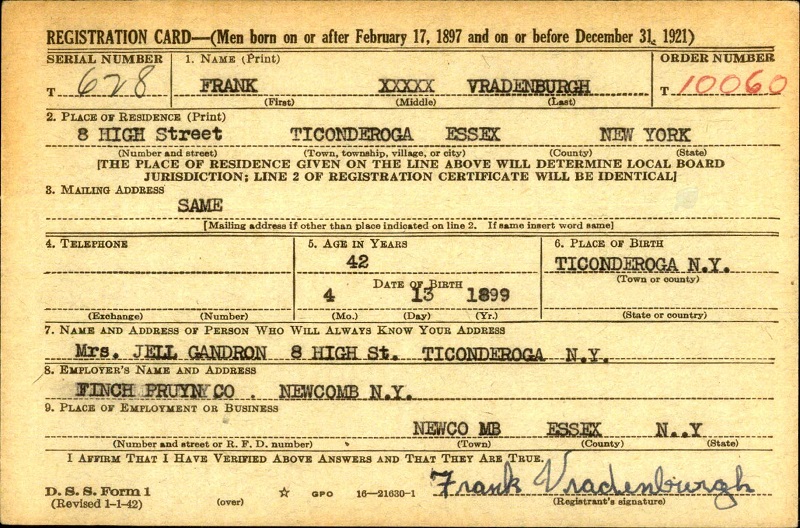 REGISTRATION CARD—(Men born on or after February 17, 1897 and on or before December 31, 1921)
SERIAL NUMBER 1. NAME (Print) ORDER NUMBER
T 628 FRANK XXXXX VRADENBURGH T 10060
(First) (Middle) (Last)
2. PLACE OF RESIDENCE (Print)
8 HIGH Street TICONDEROGA ESSEX NEW YORK
(Number and street) (Town, township, village, or city) (County) (State)
[THE PLACE OF RESIDENCE GIVEN ON THE LINE ABOVE WILL DETERMINE LOCAL BOARD
JURISDICTION; LINE 2 OF REGISTRATION CERTIFICATE WILL BE IDENTICAL]
3. MAILING ADDRESS
SAME
[Mailing address if other than place indicated on line 2. If same insert word same]
4. TELEPHONE 5. AGE IN YEARS 6. PLACE OF BIRTH
42 TICONDEROGA N.Y.
DATE OF BIRTH (Town or county)
4 13 1899
(Exchange) (Number) (Mo.) (Day) (Yr.) (State or country)
7. NAME AND ADDRESS OF PERSON WHO WILL ALWAYS KNOW YOUR ADDRESS
Mrs. JELL GANDRON 8 HIGH St. TICONDEROGA N.Y.
8. EMPLOYER'S NAME AND ADDRESS
FINCH PRUYN CO . NEWCOMB N.Y.
9. PLACE OF EMPLOYMENT OR BUSINESS
NEWCO MB ESSEX N..Y
(Number and street or R. F. D. number) (Town) (County) (State)
I AFFIRM THAT I HAVE VERIFIED ABOVE ANSWERS AND THAT THEY ARE TRUE.
Frank Vradenburgh
D. S. S. Form 1
(Revised 1-1-42) (over) ☆ GPO 16—21630-1 (Registrant's signature)